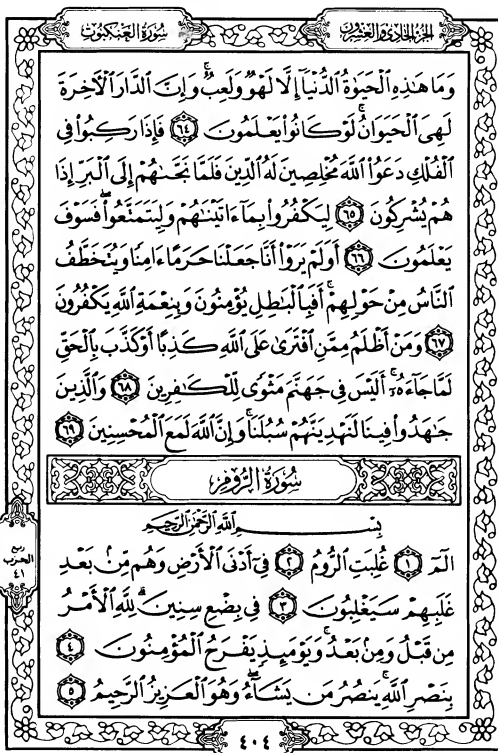 الجزء الحادي والعشرون
سورة العنكبوت
وَمَا هَٰذِهِ ٱلْحَيَوٰةُ ٱلدُّنْيَآ إِلَّا لَهْوٌ وَلَعِبٌ ۚ وَإِنَّ ٱلدَّارَ ٱلْـَٔاخِرَةَ
لَهِىَ ٱلْحَيَوَانُ ۚ لَوْ كَانُوا۟ يَعْلَمُونَ ٦٤ فَإِذَا رَكِبُوا۟ فِى
ٱلْفُلْكِ دَعَوُا۟ ٱللَّهَ مُخْلِصِينَ لَهُ ٱلدِّينَ فَلَمَّا نَجَّىٰهُمْ إِلَى ٱلْبَرِّ إِذَا
هُمْ يُشْرِكُونَ ٦٥ لِيَكْفُرُوا۟ بِمَآ ءَاتَيْنَٰهُمْ وَلِيَتَمَتَّعُوا۟ ۖ فَسَوْفَ
يَعْلَمُونَ ٦٦ أَوَلَمْ يَرَوْا۟ أَنَّا جَعَلْنَا حَرَمًا ءَامِنًا وَيُتَخَطَّفُ
ٱلنَّاسُ مِنْ حَوْلِهِمْ ۚ أَفَبِٱلْبَٰطِلِ يُؤْمِنُونَ وَبِنِعْمَةِ ٱللَّهِ يَكْفُرُونَ
٦٧ وَمَنْ أَظْلَمُ مِمَّنِ ٱفْتَرَىٰ عَلَى ٱللَّهِ كَذِبًا أَوْ كَذَّبَ بِٱلْحَقِّ
لَمَّا جَآءَهُۥٓ ۚ أَلَيْسَ فِى جَهَنَّمَ مَثْوًى لِّلْكَٰفِرِينَ ٦٨ وَٱلَّذِينَ
جَٰهَدُوا۟ فِينَا لَنَهْدِيَنَّهُمْ سُبُلَنَا ۚ وَإِنَّ ٱللَّهَ لَمَعَ ٱلْمُحْسِنِينَ ٦٩
سُورَةُ الرُّومِ
بِسْمِ ٱللَّهِ ٱلرَّحْمَٰنِ ٱلرَّحِيمِ
الٓمٓ ١ غُلِبَتِ ٱلرُّومُ ٢ فِىٓ أَدْنَى ٱلْأَرْضِ وَهُم مِّنۢ بَعْدِ
غَلَبِهِمْ سَيَغْلِبُونَ ٣ فِى بِضْعِ سِنِينَ ۗ لِلَّهِ ٱلْأَمْرُ
مِن قَبْلُ وَمِنۢ بَعْدُ ۚ وَيَوْمَئِذٍ يَفْرَحُ ٱلْمُؤْمِنُونَ ٤
بِنَصْرِ ٱللَّهِ ۚ يَنصُرُ مَن يَشَآءُ ۖ وَهُوَ ٱلْعَزِيزُ ٱلرَّحِيمُ ٥
ربع
الحزب
٤١
٤٠٤